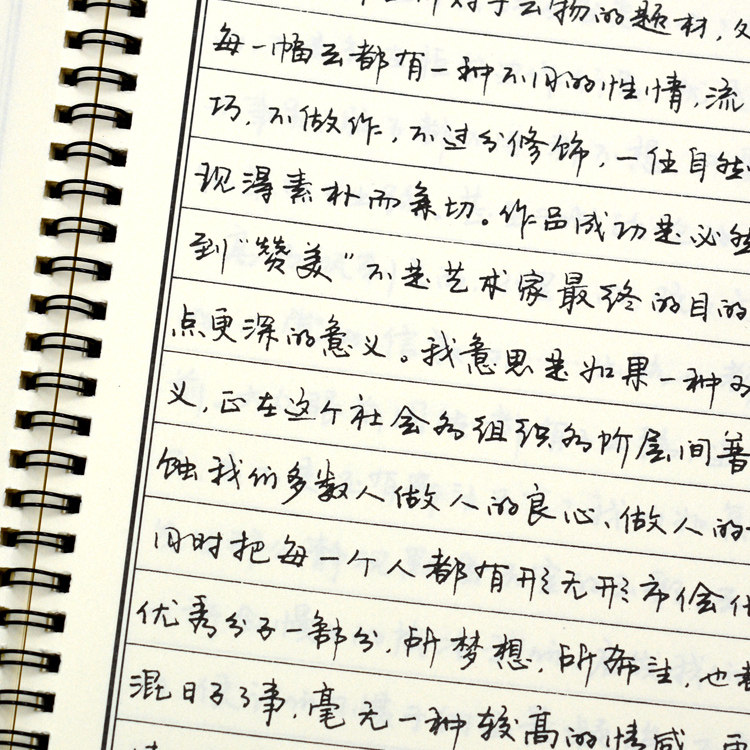 对于云物的题材,
每一幅云都有一种不同的性情,流
巧,不做作,不过分修饰,一任自然
现得素朴而亲切。作品成功是必然
到“赞美”不是艺术家最终的目的
点更深的意义。我意思是如果一种
义,正在这个社会各组织各阶层间普
蚀我们多数人做人的良心、做人的
同时把每一个人都有形无形市侩化
优秀分子一部分,所梦想,所希注,也
混日子了事,毫无一种较高的情感,